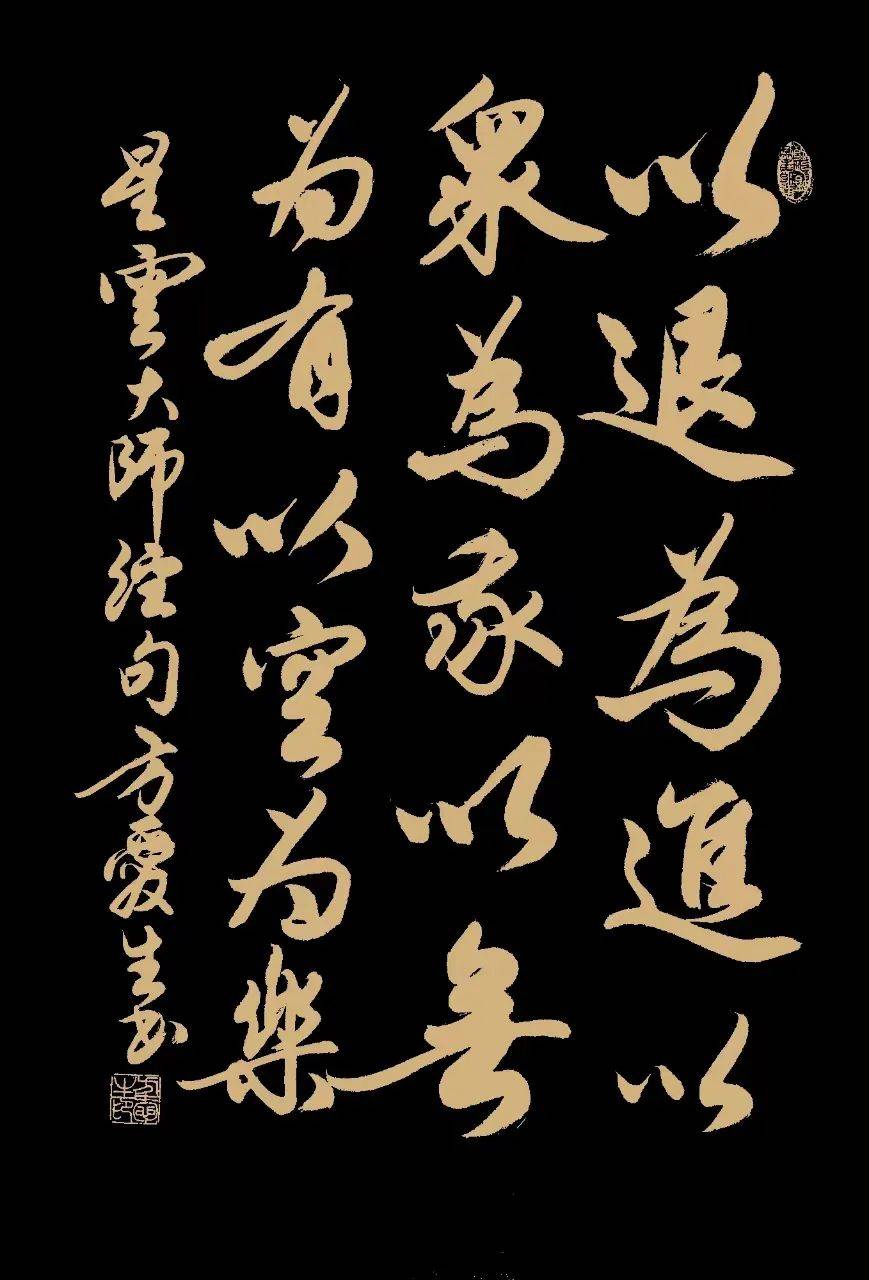 以退為進以
眾為我以無
为有以空为樂
星雲大師經句方愛生書